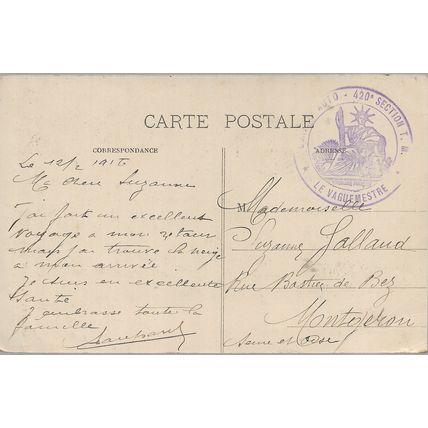 CARTE POSTALE
CORRESPONDANCE
Le 12/2 1916
Ma chere Suzanne
J'ai fait un excellent
voyage a mon retour
mais j'ai trouve la neige
a mon arrivée
Je suis en excellente
santé
J'embrasse toute la
famille
AUTO - 420e SECTION T. M.
LE VAGUEMESTRE
ADRESSE
M Mademoiselle
Suzanne Galland
Rue Bastin de Bez
Montgeron
Seine et Oise